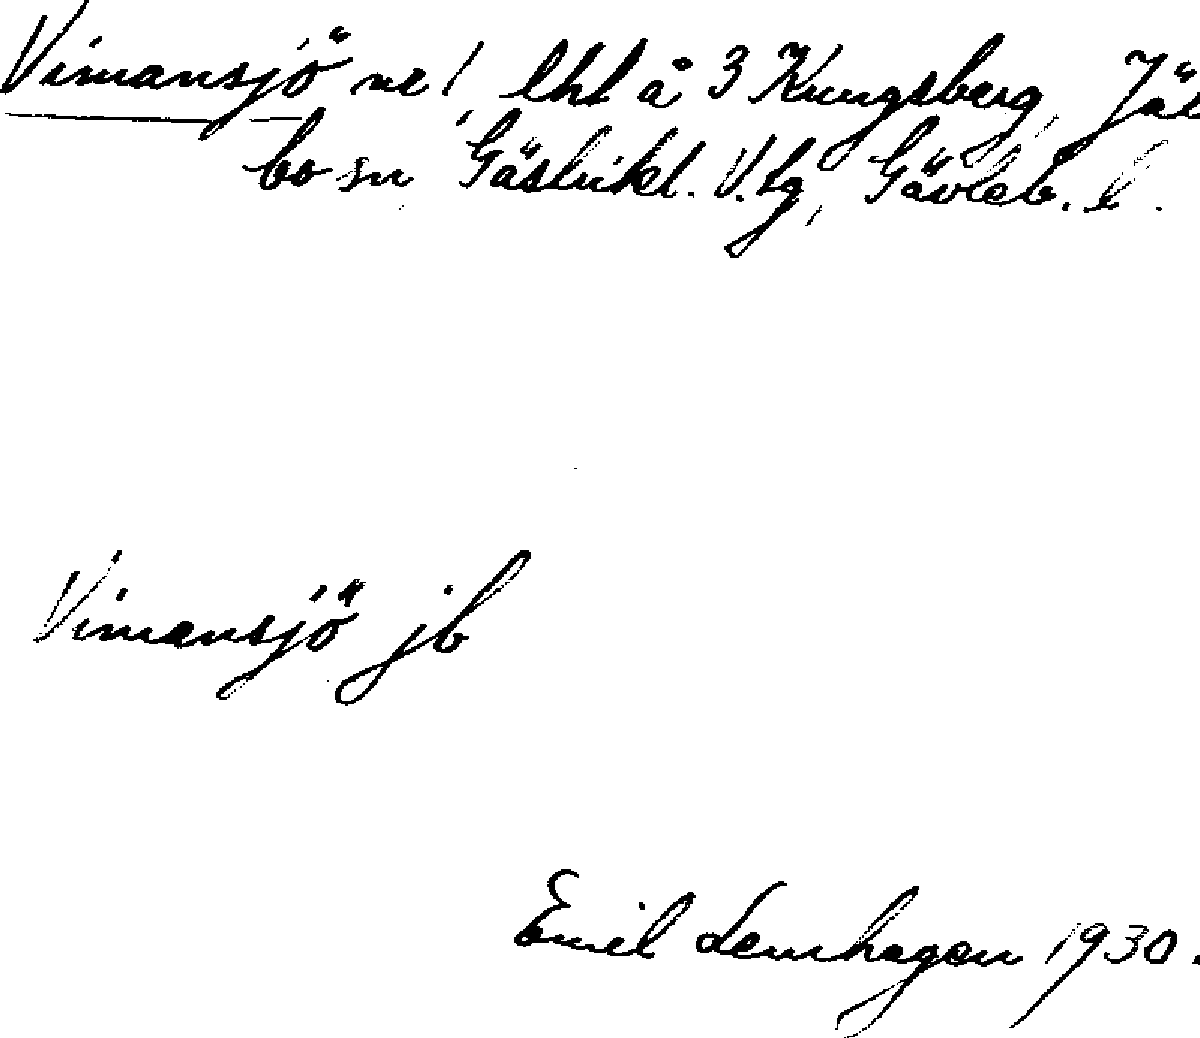 Vimansjö ne!, lht å 3 Kungsberg, Jär
bo sn Gästrikl. V. tg, Gävleb. l.
Vimansjö jb
Emil Lemhagen 1930.